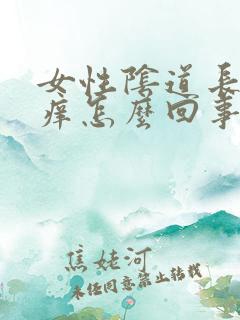 女性陰道長
痒怎麼回事
焦姥河
未经同意禁止转载